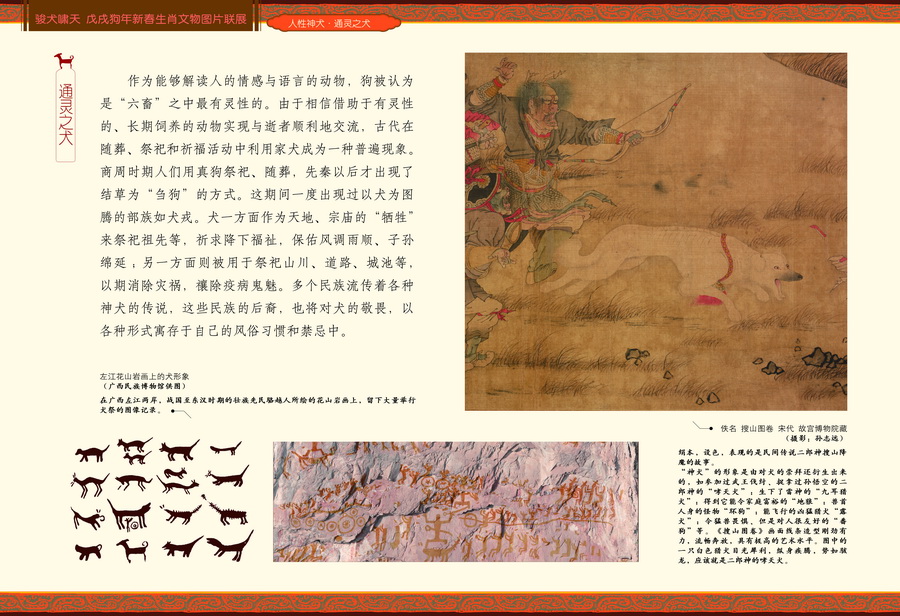 骏犬啸天 戊戌狗年新春生肖文物图片联展
人性神犬·通灵之犬
通灵之犬
作为能够解读人的情感与语言的动物，狗被认为
是“六畜”之中最有灵性的。由于相信借助于有灵性
的、长期饲养的动物实现与逝者顺利地交流，古代在
随葬、祭祀和祈福活动中利用家犬成为一种普遍现象。
商周时期人们用真狗祭祀、随葬，先秦以后才出现了
结草为“刍狗”的方式。这期间一度出现过以犬为图
腾的部族如犬戎。犬一方面作为天地、宗庙的“牺牲”
来祭祀祖先等，祈求降下福祉，保佑风调雨顺、子孙
绵延；另一方面则被用于祭祀山川、道路、城池等，
以期消除灾祸，禳除疫病鬼魅。多个民族流传着各种
神犬的传说，这些民族的后裔，也将对犬的敬畏，以
各种形式寓存于自己的风俗习惯和禁忌中。
左江花山岩画上的犬形象
（广西民族博物馆供图）
在广西左江两岸，战国至东汉时期的壮族先民骆越人所绘的花山岩画上，留下大量举行
犬祭的图像记录。
佚名 搜山图卷 宋代 故宫博物院藏
（摄影：孙志远）
绢本，设色，表现的是民间传说二郎神搜山降
魔的故事。
“神犬”的形象是由对犬的崇拜还衍生出来
的，如参加过武王伐纣、捉拿过孙悟空的二
郎神的“哮天犬”；生下了雷神的“九耳猎
犬”；得到它能令家庭富裕的“地狼”；兽首
人身的怪物“环狗”；能飞行的凶猛猎犬“露
犬”；令猛兽畏惧、但是对人很友好的“番
狗”等。《搜山图卷》画面线条造型刚劲有
力，流畅奔放，具有极高的艺术水平。图中的
一只白色猎犬目光犀利，纵身疾腾，势如驱
龙，应该就是二郎神的哮天犬。